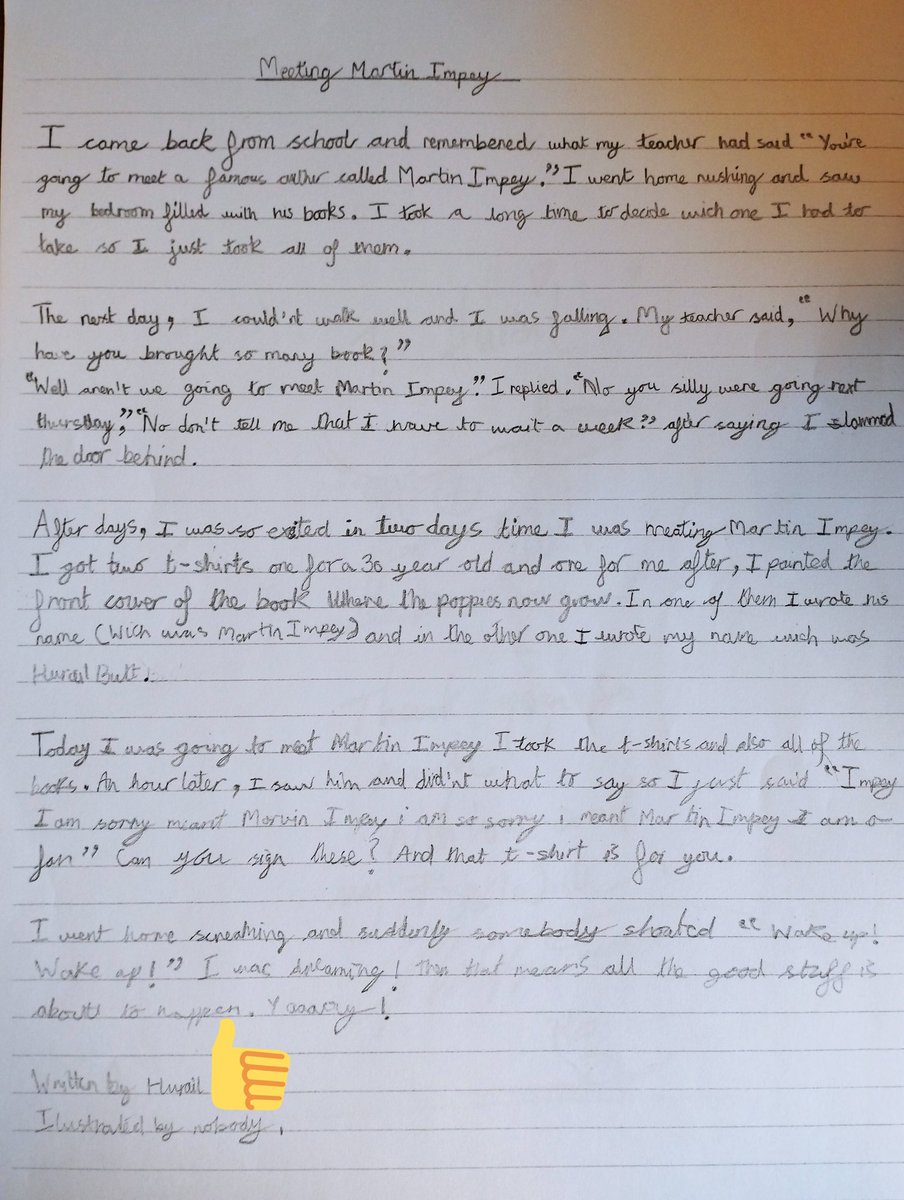 Meeting Martin Impey
I came back from school and remembered what my teacher had said "You're
going to meet a famous auther called Martin Impey." I went home rushing and saw
my bedroom filled with his books. I took a long time to decide wich one I had to
take so I just took all of them.
The next day, I could'nt walk well and I was falling. My teacher said, "Why
have you brought so many book?"
"Well aren't we going to meet Martin Impey." I replied. "No you silly were going next
thursday," "No don't tell me that I have to wait a week?" after saying I slammed
the door behind.
After days, I was so exited in two days time I was meating Martin Impey.
I got two t-shirts one for a 30 year old and one for me after, I painted the
front cover of the book Where the poppies now grow. In one of them I wrote his
name (wich was Martin Impey) and in the other one I wrote my name wich was
Hurail Butt.
Today I was going to meet Martin Impey I took the t-shirts and also all of the
books. An hour later, I saw him and did'nt what to say so I just said "Impey
I am sorry meant Morvin Impey i am so sorry i meant Martin Impey I am a
fan" Can you sign these? And that t-shirt is for you.
I went home screaming and suddenly somebody shoated "Wake up!
Wake up!" I was dreaming! Then that means all the good stuff is
about to happen. Yaaaay!
Written by Hurail
Ilustrated by nobody.